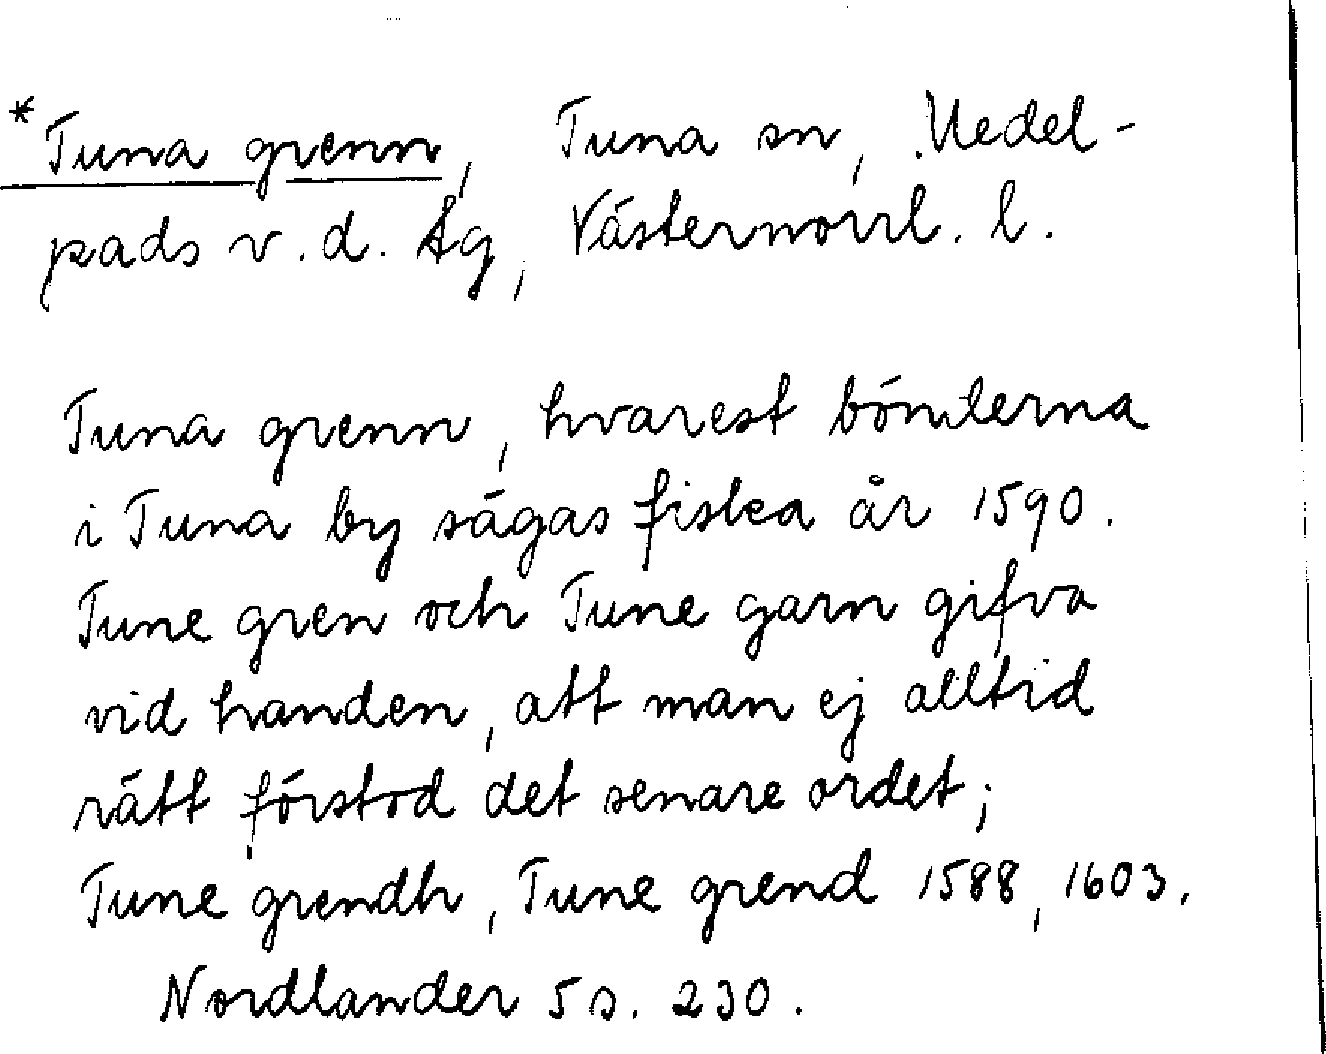 *Tuna grenn, Tuna sn, Medel-
pads v.d. tg, Västernorrl. l.
Tuna grenn, hvarest bönderna
i Tuna by sägas fiska år 1590.
Tune gren och Tune garn gifva
vid handen, att man ej alltid
rätt förstod det senare ordet;
Tune grendh, Tune grend 1588, 1603.
Nordlander 5 s. 230.